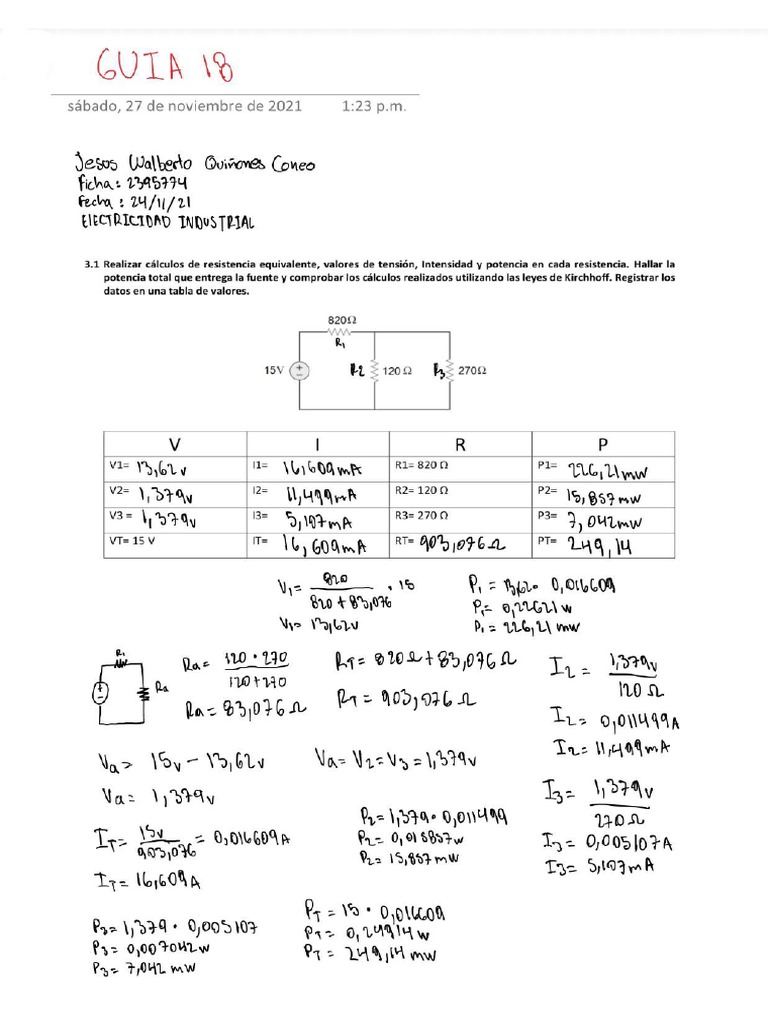 GUIA 18
sábado, 27 de noviembre de 2021 1:23 p.m.
Jesos Walberto Quiñones Coneo
ficha: 2395774
fecha: 24/11/21
ElECTRICIDAD INDUSTRIAL
3.1 Realizar cálculos de resistencia equivalente, valores de tensión, Intensidad y potencia en cada resistencia. Hallar la
potencia total que entrega la fuente y comprobar los cálculos realizados utilizando las leyes de Kirchhoff. Registrar los
datos en una tabla de valores.
820Ω
R1
15V R2 120 Ω R3 270Ω
V I R P
V1= 13,62v I1= 16,609mA R1= 820 Ω P1= 226,21mw
V2= 1,379v I2= 11,499mA R2= 120 Ω P2= 15,857mw
V3 = 1,379v I3= 5,107mA R3= 270 Ω P3= 7,042mw
VT= 15 V IT= 16,609mA RT= 903,076Ω PT= 249,14
V1= 820 / 820+83,076 · 15
V1= 13,62v
P1= 13,620· 0,016609
P1= 0,22621w
P1= 226,21 mw
R1
Ra
Ra= 120 · 270 / 120+270
Ra= 83,076Ω
RT= 820Ω+83,076Ω
RT= 903,076Ω
I2= 1,379v / 120Ω
I2= 0,011499A
I2= 11,499mA
Va= 15v-13,62v
Va= 1,379v
Va=V2=V3=1,379v
I3= 1,379v / 270Ω
I3= 0,005107A
I3= 5,107mA
IT= 15v / 903,076 = 0,016609A
IT= 16,609A
P2= 1,379·0,011499
P2= 0,015857w
P2= 15,857mw
P3= 1,379 · 0,005107
P3= 0,007042w
P3= 7,042 mw
PT= 15 · 0,016609
PT= 0,24914w
PT= 249,14 mw